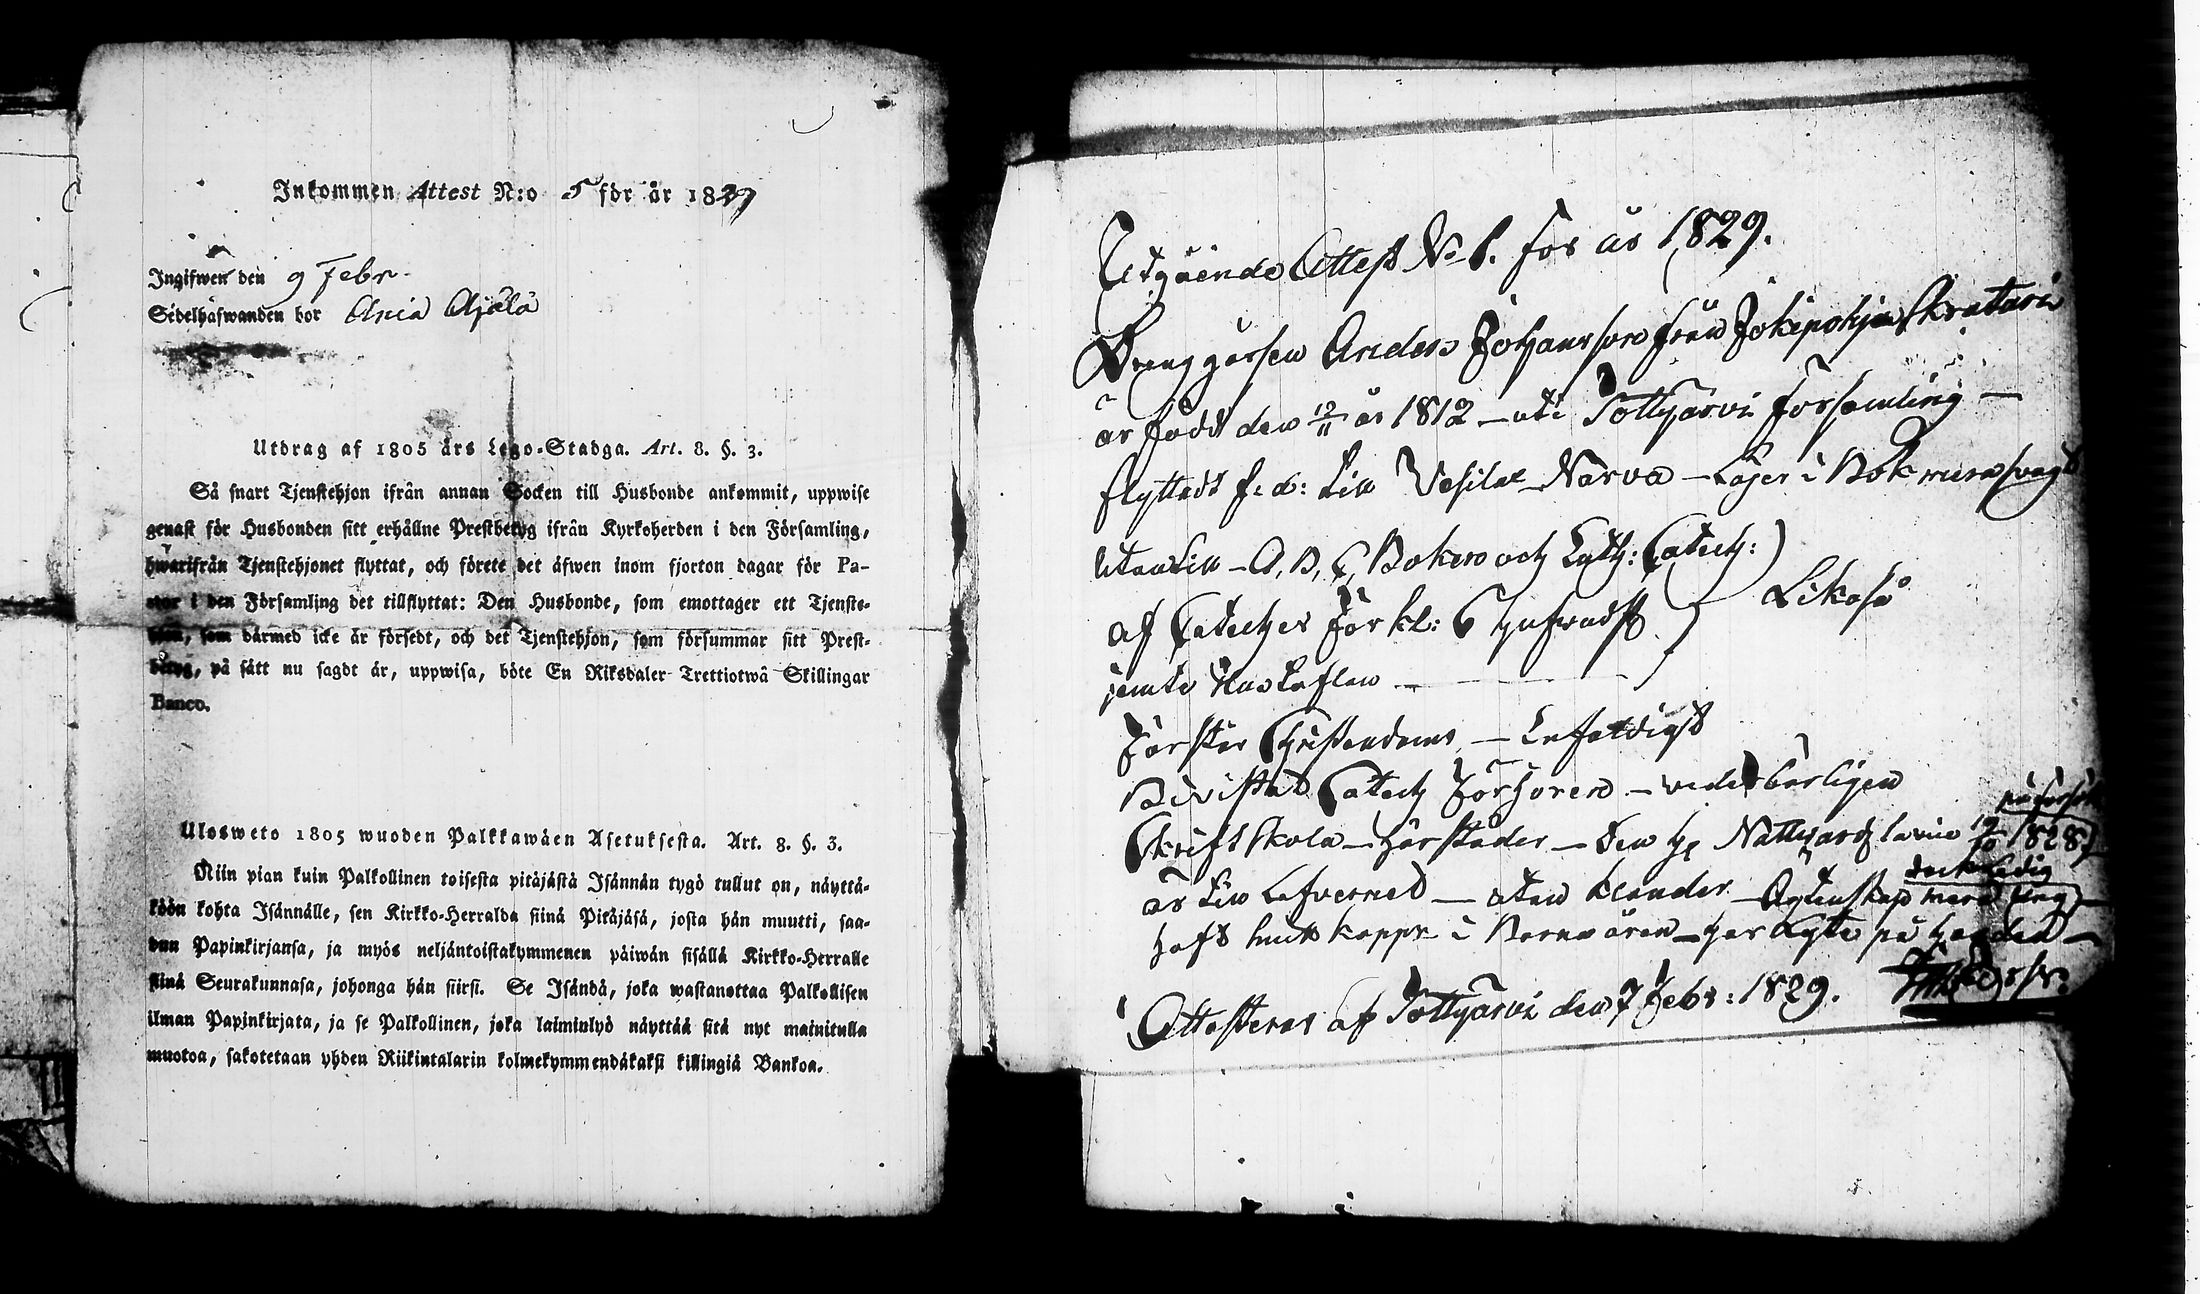 Inkommen Attest N:o 5 för år 1829
Ingifwen den 9 Febr.
Sedelhafwanden bor Ania Ajälä
Utdrag af 1805 års Lego-Stadga. Art. 8. §. 3.
Så snart Tjenstehjon ifrån annan Socken till Husbonde ankommit, uppwise
genast för Husbonden sitt erhållne Prestbetyg ifrån Kyrkoherden i den Församling,
hwarifrån Tjenstehjonet flyttat, och förete det äfwen inom fjorton dagar för Pa-
stor i den Församling det tillflyttat: Den Husbonde, som emottager ett Tjenste-
hjon, som därmed icke är försedt, och det Tjenstehjon, som försummar sitt Prest-
betyg, på sätt nu sagdt är, uppwisa, böte En Riksdaler Trettiotwå Skillingar
Banco.
Ulosweto 1805 wuoden Palkkawäen Asetuksesta. Art. 8. §. 3.
Niin pian kuin Palkollinen toisesta pitäjästä Isännän tygö tullut on, näyttä-
köön kohta Isännälle, sen Kirkko-Herralda siinä Pitäjäsä, josta hän muutti, saa-
dun Papinkirjansa, ja myös neljäntoistakymmenen päiwän sisällä Kirkko-Herralle
siinä Seurakunnasa, johonga hän siirsi. Se Isändä, joka wastanottaa Palkollisen
ilman Papinkirjata, ja se Palkollinen, joka laiminlyö näyttää sitä nyt mainitulla
muotoa, sakotetaan yhden Riikintalarin kolmekymmendäkaksi killingiä Bankoa.
Utgående Attest No 6. för år 1829.
Dräng gåssen Anders Johansson från Jokipohja
är född den 12/11 år 1812 – uti Tottijärvi församling –
flyttadt f. d: till Vesilax Narva – Läser i Bok
utantill – A, B, C, Boken och Luth: Catech:
af Cateches förkl: 6 hufvudst. Likaså
jemte Hustaflan
Förstår Christendoms – Enfaldigt
Bevistat Catech förhören – vederbörligen
Skriftskola – härstädes – den h. Nattvard 19/10 1828
är till Lefvernet – utan klander Ägtenskap
haft kopper i Barnaåren – har Lyte på
Attesteras af Tottijärvi den 7 Febr: 1829.